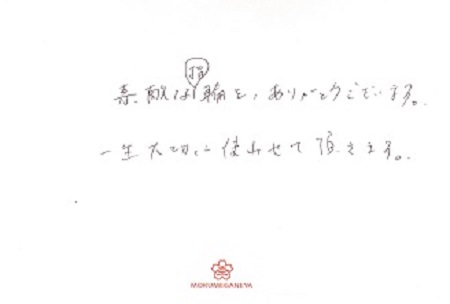 素敵な指輪を、ありがとうございます。
一生大切に使わせて頂きます。
MOKUMEGANEYA